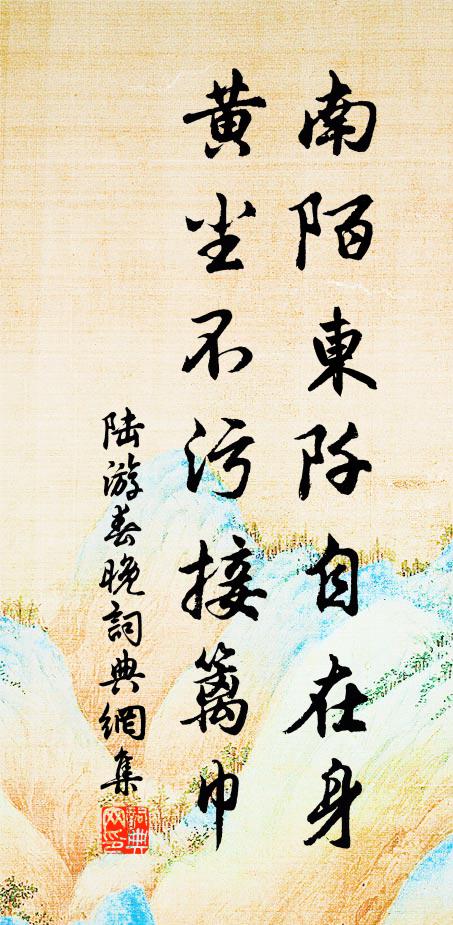 南陌東阡自在身
黄尘不污接篱巾
陆游春晚詞典網集
詞典